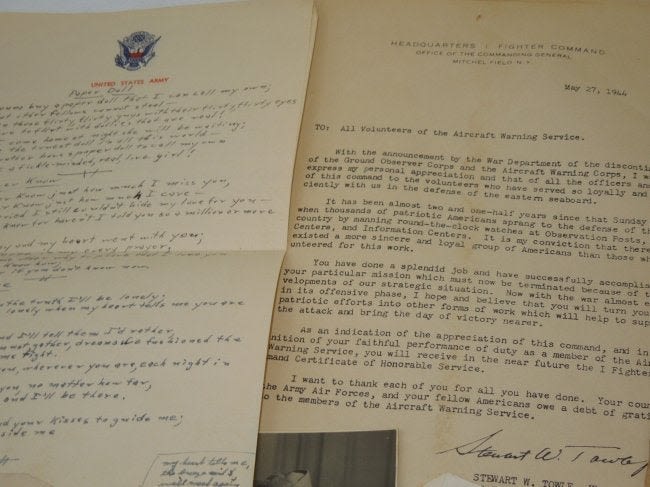 UNITED STATES ARMY
Paper Doll
buy a paper doll that I can call my own,
other fellows cannot steal —
those flirty, flirty guys with their flirty, flirty eyes
have to flirt with dollies that are real!
come home at night she will be waiting;
the truest doll in all this world —
rather have a paper doll to call my own
a fickle-minded, real, live girl!
Know
Know just how much I miss you,
Know just how much I care
tried I still couldn't hide my love for you —
know for haven't I told you so a million or more
and my heart went with you;
every prayer;
if you don't know now.
the truth I'll be lonely;
lonely when my heart tells me you are
and I'll tell them I'd rather,
together, dreams we fashioned the
you, wherever you are, each night in
you, no matter how far,
and I'll be there.
your kisses to guide me;
side me
my heart tells me,
HEADQUARTERS I FIGHTER COMMAND
OFFICE OF THE COMMANDING GENERAL
MITCHEL FIELD N.Y.
May 27, 1944
TO: All Volunteers of the Aircraft Warning Service.
With the announcement by the War Department of the discontin
of the Ground Observer Corps and the Aircraft Warning Corps, I w
express my personal appreciation and that of all the officers and
of this command to the volunteers who have served so loyally and
ciently with us in the defense of the eastern seaboard.
It has been almost two and one-half years since that Sunday
when thousands of patriotic Americans sprang to the defense of th
country by manning round-the-clock watches at Observation Posts,
Centers, and Information Centers. It is my conviction that there
existed a more sincere and loyal group of Americans than those wh
unteered for this work.
You have done a splendid job and have successfully accomplis
your particular mission which must now be terminated because of t
velopments of our strategic situation. Now with the war almost e
in its offensive phase, I hope and believe that you will turn you
patriotic efforts into other forms of work which will help to sup
the attack and bring the day of victory nearer.
As an indication of the appreciation of this command, and in
nition of your faithful performance of duty as a member of the Air
Warning Service, you will receive in the near future the I Fighter
mand Certificate of Honorable Service.
I want to thank each of you for all you have done. Your coun
the Army Air Forces, and your fellow Americans owe a debt of grati
to the members of the Aircraft Warning Service.
Stewart W. Towle
STEWART W. TOWLE